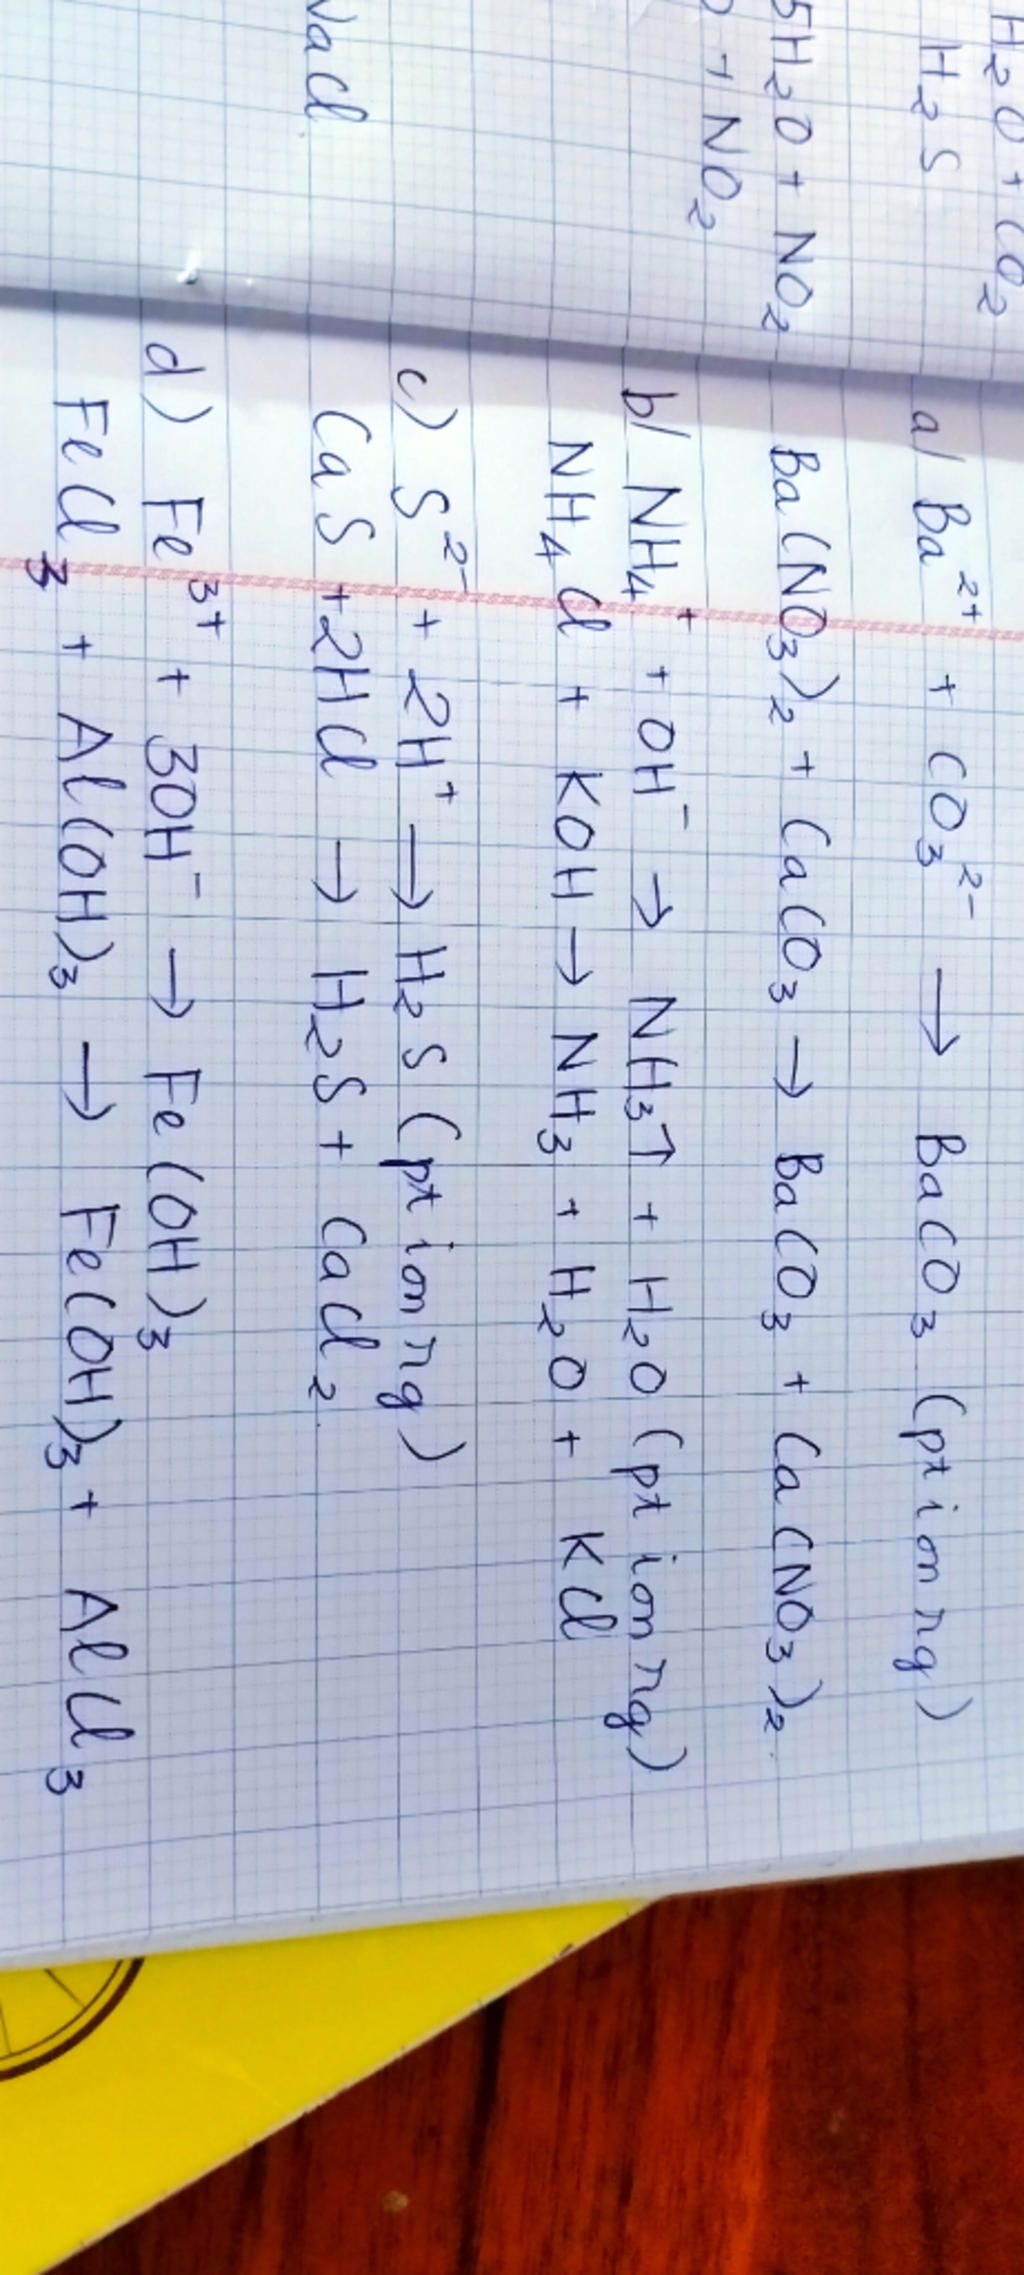 H₂O + CO₂
H₂S
5H₂O + NO₂
+ NO₂
NaCl
a/ Ba²⁺ + CO₃²⁻ → BaCO₃ (pt ion rg)
Ba(NO₃)₂ + CaCO₃ → BaCO₃ + Ca(NO₃)₂.
b/ NH₄⁺ + OH⁻ → NH₃↑ + H₂O (pt ion rg)
NH₄Cl + KOH → NH₃ + H₂O + KCl
c) S²⁻ + 2H⁺ → H₂S (pt ion rg)
CaS + 2HCl → H₂S + CaCl₂.
d) Fe³⁺ + 3OH⁻ → Fe(OH)₃
FeCl₃ + Al(OH)₃ → Fe(OH)₃ + AlCl₃